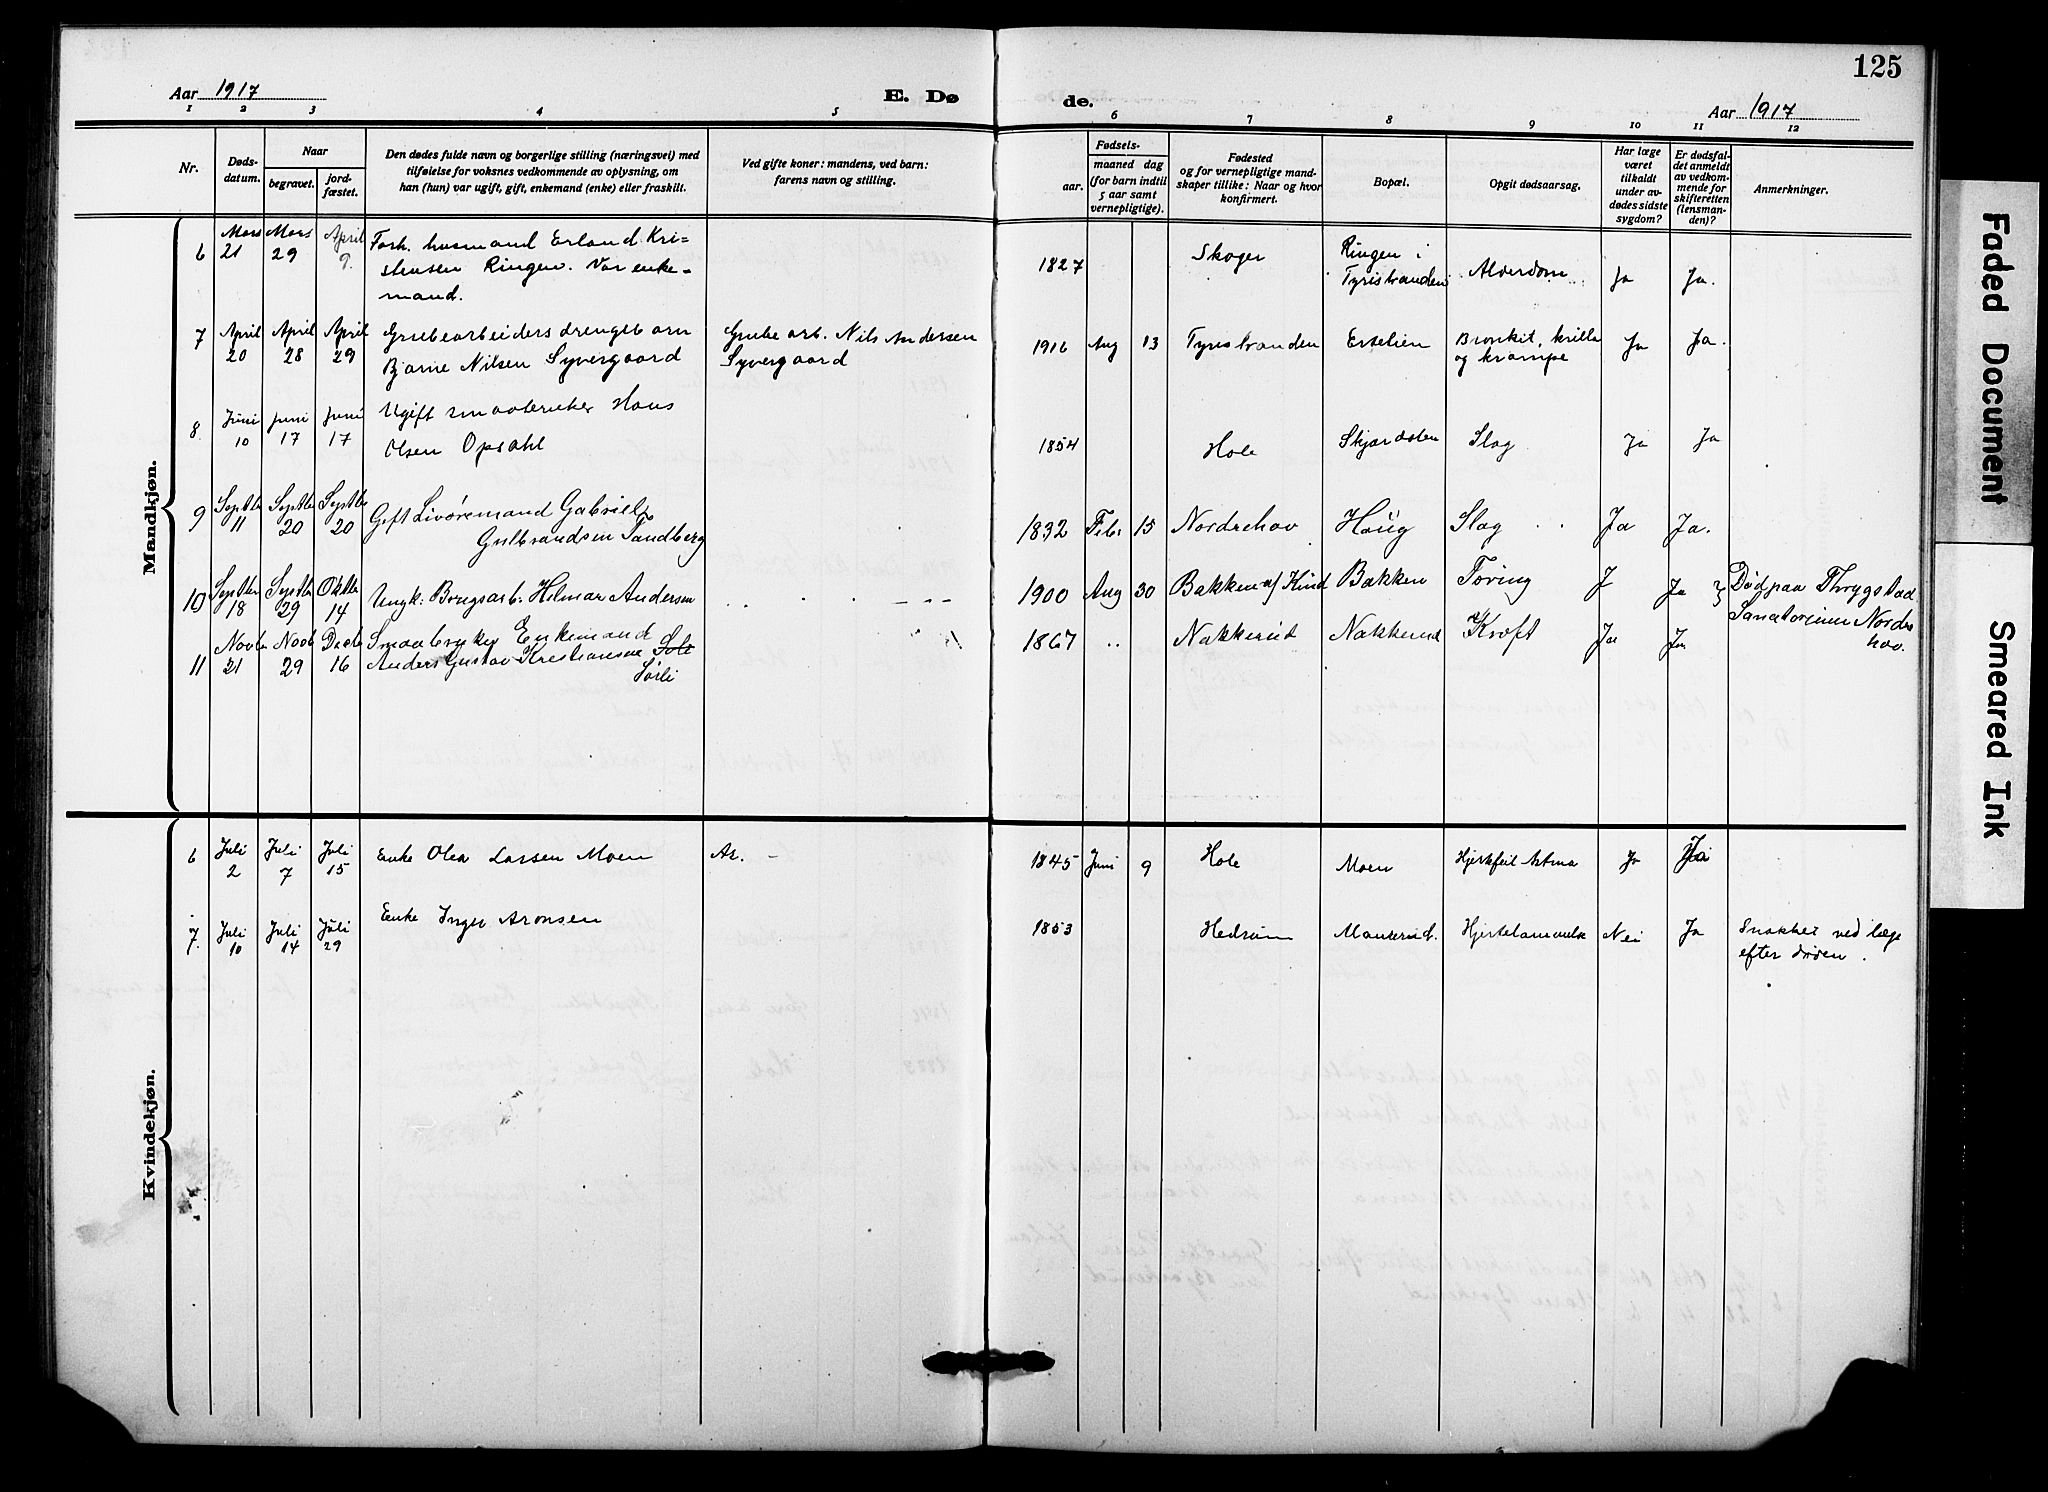 125
Aar 1917
E. Dø
de.
Aar 1917
1 2 3 4 5 6 7 8 9 10 11 12
Nr.
Døds-
datum.
Naar
begravet.
jord-
fæstet.
Den dødes fulde navn og borgerlige stilling (næringsvei) med
tilføielse for voksnes vedkommende av oplysning, om
han (hun) var ugift, gift, enkemand (enke) eller fraskilt.
Ved gifte koner: mandens, ved barn:
farens navn og stilling.
Fødsels-
aar.
maaned dag
(for barn indtil
5 aar samt
vernepligtige).
Fødested
og for vernepligtige mand-
skaper tillike: Naar og hvor
konfirmert.
Bopæl.
Opgit dødsaarsag.
Har læge
været
tilkaldt
under av-
dødes sidste
sygdom?
Er dødsfal-
det anmeldt
av vedkom-
mende for
skifteretten
(lensman-
den)?
Anmerkninger.
Mandkjøn.
6 Mars 21 Mars 29 April 9.
Fork. husmand Erland Kri-
stensen Ringen. Var enke-
mand.
1827 Skoger Ringen i
Tyristranden Alderdom Ja Ja.
7 April 20 April 28 April 29
Grubearbeiders drengebarn
Bjarne Nilsen Syvergaard
Grube arb. Nils Andersen
Syvergaard
1916 Aug 13 Tyristranden Ertelien Bronkit, krilla
og krampe Ja Ja.
8 Juni 10 Juni 17 Juni 17
Ugift smaabruker Hans
Olsen Opsahl
1854 Hole Skjærdalen Slag Ja Ja
9 Septbr 11 Septbr 20 Septbr 20
Gift Livøremand Gabriel
Gulbrandsen Tandberg
1832 Febr 15 Nordrehov Haug Slag Ja Ja.
10 Septbr 18 Septbr 29 Oktbr 14
Ungk: Brugsarb. Hilmar Andersen
1900 Aug 30 Bakken Bakken Tæring J Ja Død paa
Sanatorium Nordre
hov.
11 Novbr 21 Novb 29 Decbr 16
Smaabruker Enkemand
Anders Gustav Kristiansen
Sørli
1867 Nakkerud Nakkerud Kræft Ja Ja
Kvindekjøn.
6 Juli 2 Juli 7 Juli 15
Enke Olea Larsen Moen Ar. -
1845 Juni 9 Hole Moen Hjertefeil Astma Ja Ja
7. Juli 10 Juli 14 Juli 29
Enke Inger Aronsen
1853 Hedrum Hjertelammelse Nei Ja
Snakket ved læge
efter døden.
Faded Document
Smeared Ink